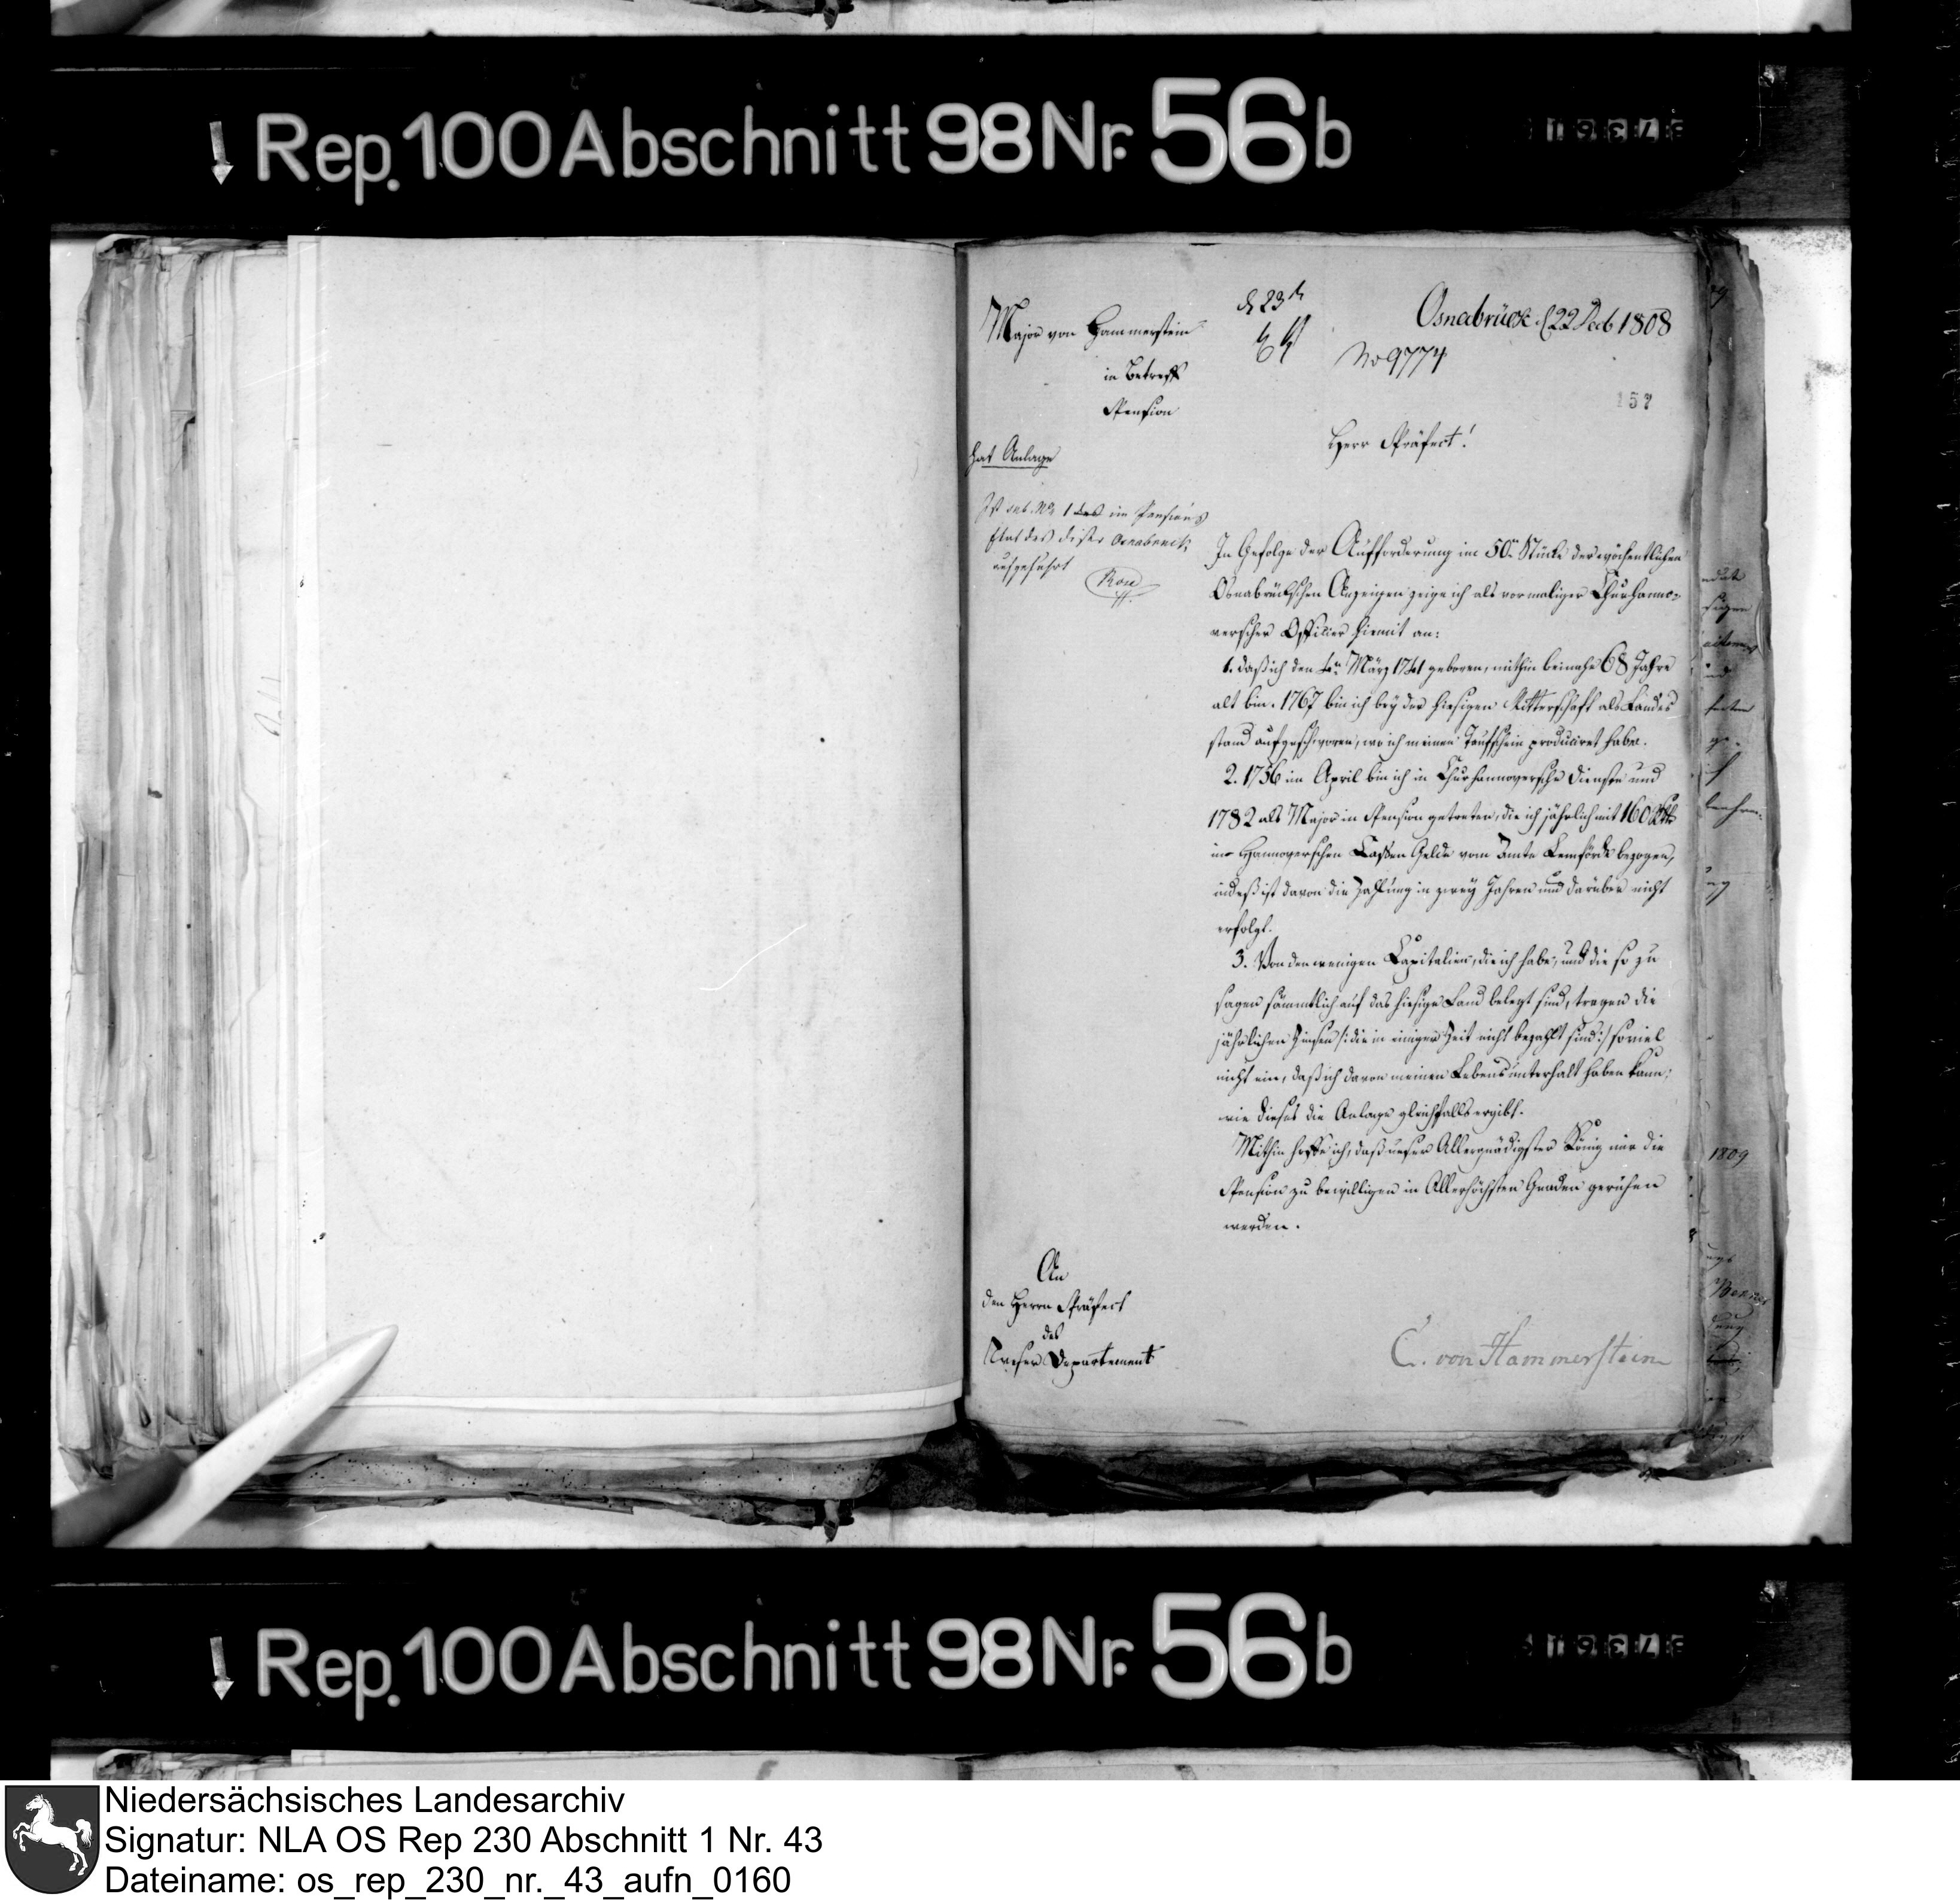 Rep. 100 Abschnitt 98 Nr. 56b
Major von Hammerstein
in Betreff
Pension
hat Anlage
Ist sub No 1 das im Pensions
Etat des Distr Osnabrück
aufgeführt
d 23
Osnabrück d 22 Decb 1808
No 9774
157
Herr Präfect!
In Gefolge der Aufforderung im 50n Stücke der wöchentlichen
Osnabrückschen Anzeigen zeige ich als vormaliger Churhanno-
verscher Officier hiemit an:
1. daß ich den März 1741 geboren, mithin beinahe 68 Jahre
alt bin. 1767 bin ich bey der hiesigen Ritterschaft als Landes
stand aufgeschworen, wo ich meinen Taufschein produciret habe.
2. 1756 im April bin ich in Churhannoversche Dienste und
1782 als Major in Pension getreten, die ich jährlich mit 160 Rthlr
in Hannoverschen Cassen Gelde vom Amte Lemförde bezogen,
indeß ist davon die Zahlung in zwey Jahren und darüber nicht
erfolgt.
3. Von den wenigen Capitalien, die ich habe, und die so zu
sagen sämmtlich auf das hiesige Land belegt sind, tragen die
jährlichen Zinsen /: die in einiger Zeit nicht bezahlt sind :/ soviel
nicht ein, daß ich davon meinen Lebensunterhalt haben kann;
wie dieses die Anlage gleichfalls ergibt.
Mithin hoffe ich, daß unser Allergnädigster König mir die
Pension zu bewilligen in Allerhöchsten Gnaden geruhen
werden.
An
den Herrn Präfect
des
Weser Departement
C. von Hammerstein
1809
Rep. 100 Abschnitt 98 Nr. 56b
Niedersächsisches Landesarchiv
Signatur: NLA OS Rep 230 Abschnitt 1 Nr. 43
Dateiname: os_rep_230_nr._43_aufn_0160